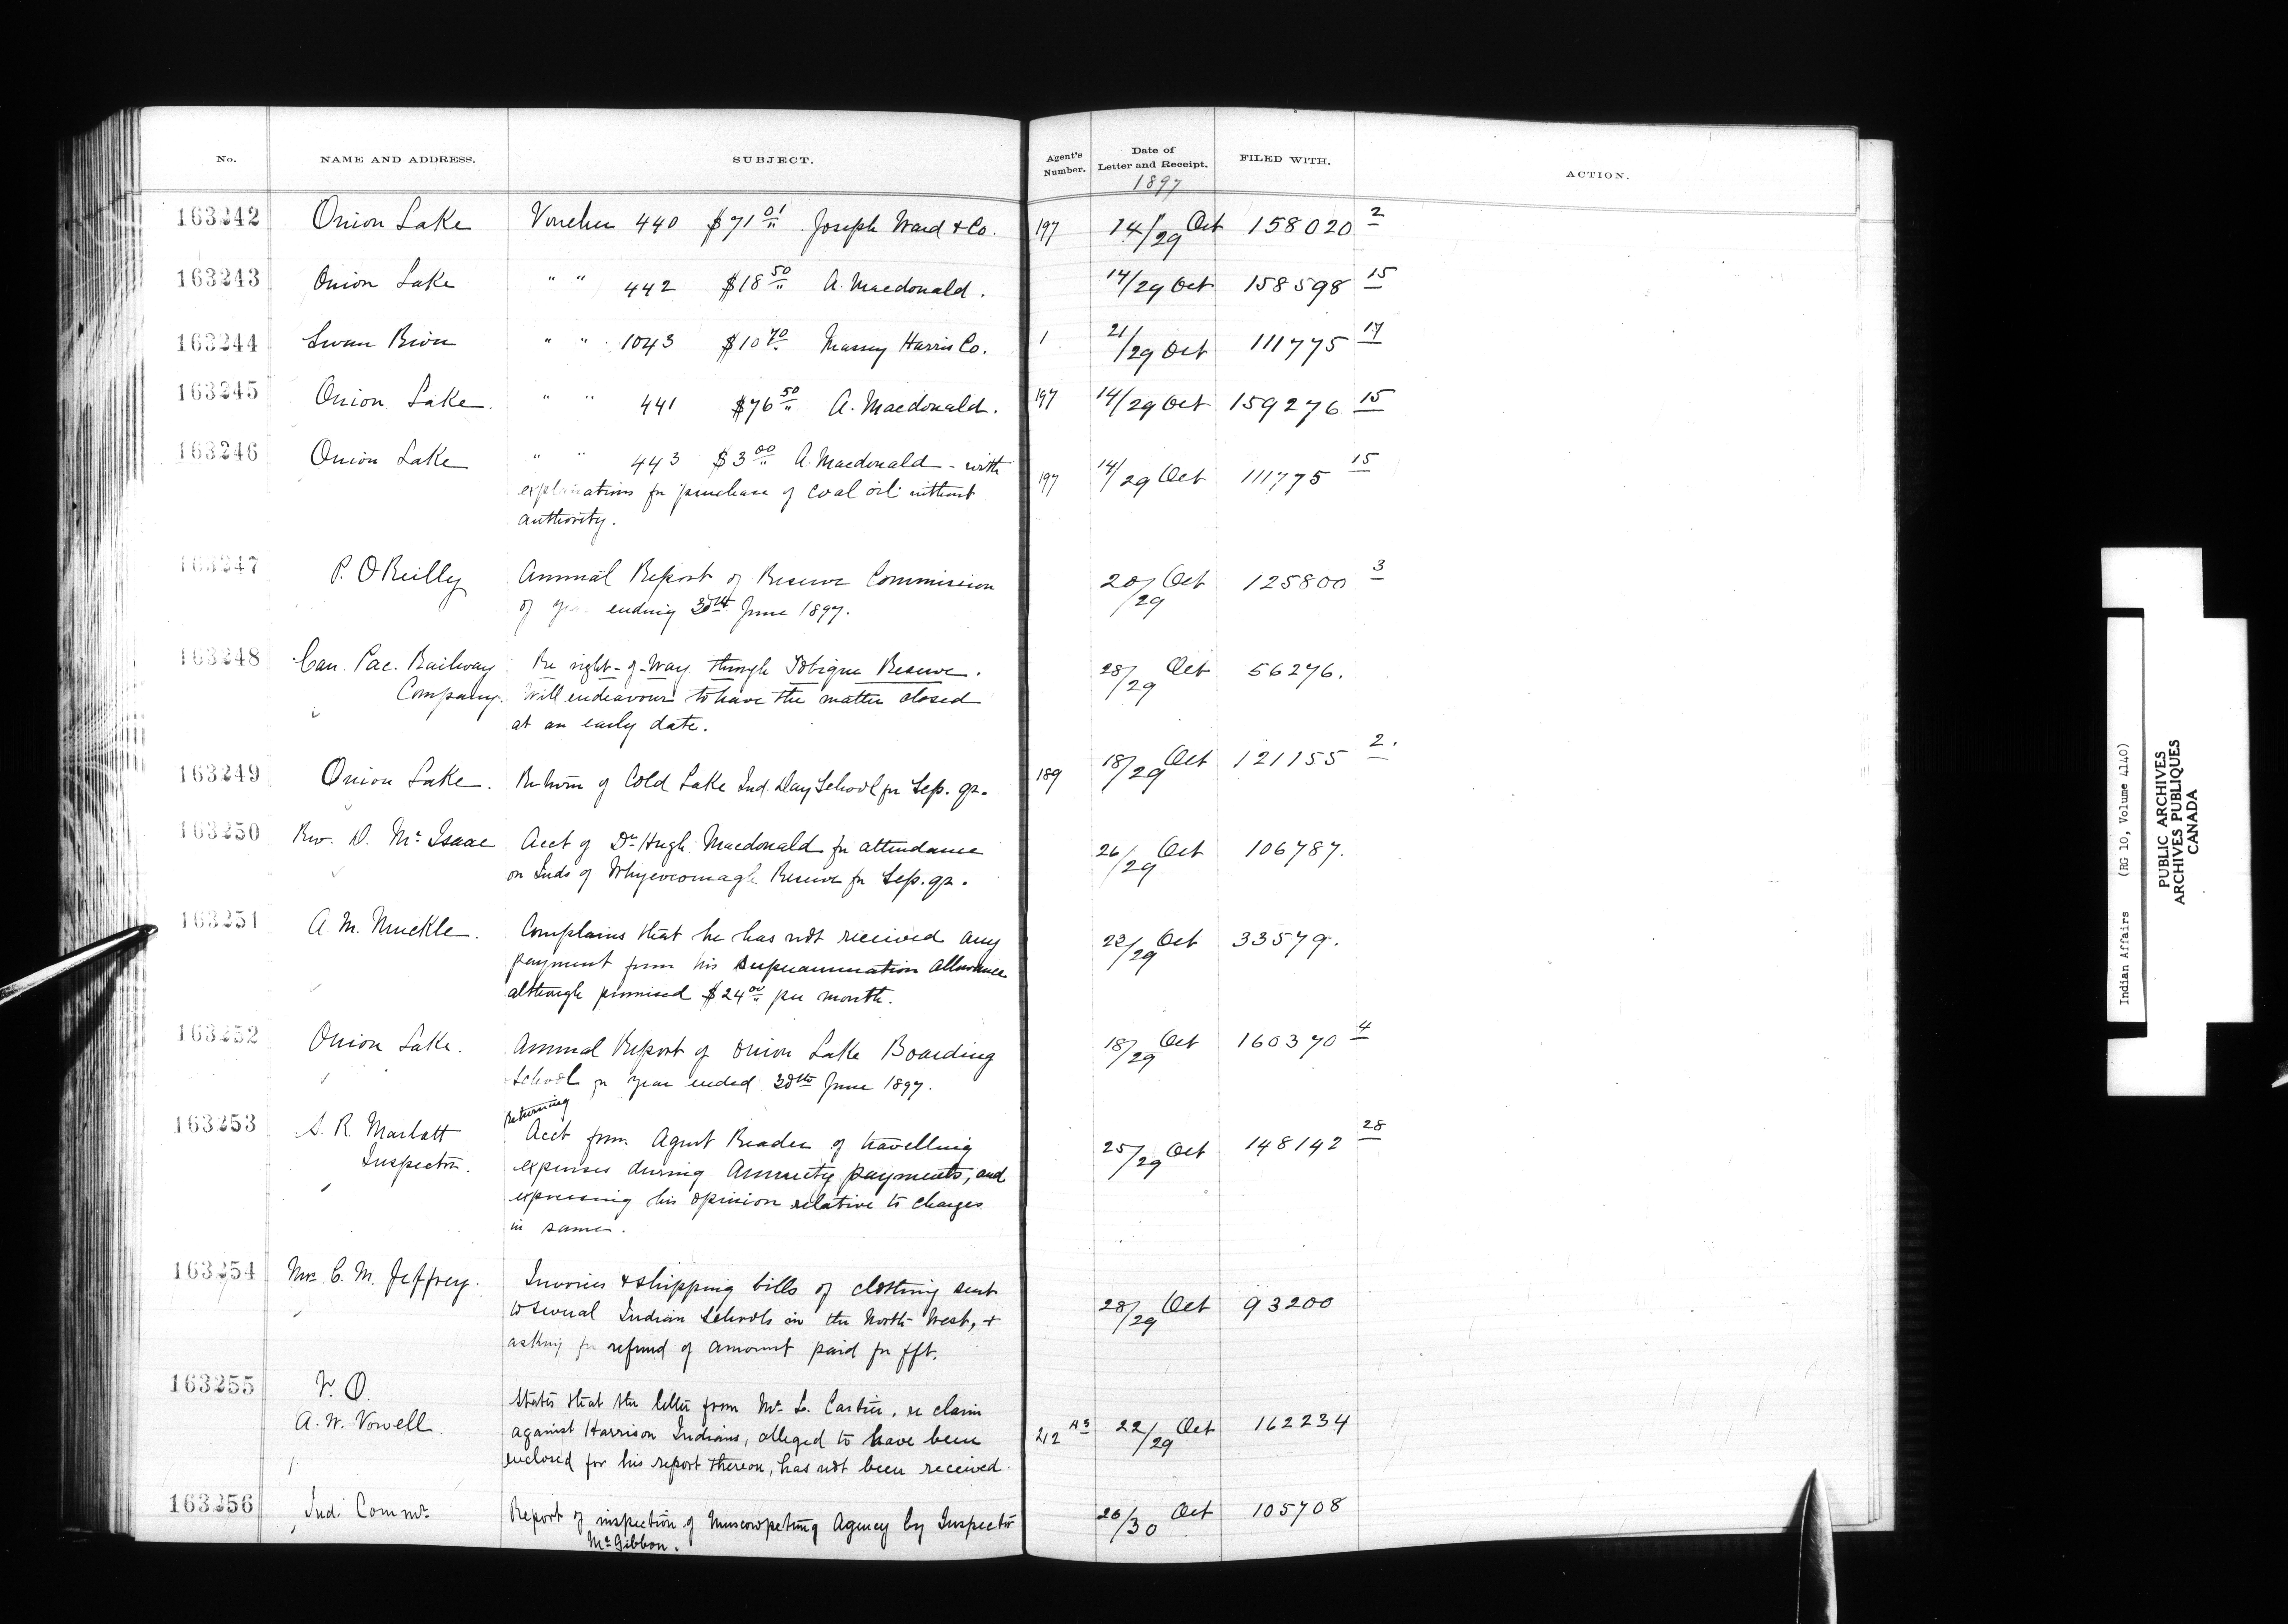 No. NAME AND ADDRESS. SUBJECT. Agent's Number. Date of Letter and Receipt. FILED WITH. ACTION.
1897
163242 Onion Lake Voucher 440 $71 01 Joseph Ward & Co. 197 14/29 Oct 158020 2
163243 Onion Lake " " 442 $18 50 A. Macdonald. 14/29 Oct 158598 15
163244 Swan River " " 1043 $10 70 Massey Harris Co. 1 21/29 Oct 111775 17
163245 Onion Lake. " " 441 $76 50 A. Macdonald. 197 14/29 Oct 159276 15
163246 Onion Lake " " 443 $3 00 A. Macdonald - with 197 14/29 Oct 111775 15
explanations for purchase of coal oil without
authority.
163247 P. O'Reilly Annual Report of Reserve Commission 20/29 Oct 125800 3
of year ending 30th June 1897.
163248 Can. Pac. Railway Re right-of-Way through Tobique Reserve. 28/29 Oct 56276.
Company. Will endeavour to have the matter closed
at an early date.
163249 Onion Lake. Return of Cold Lake Ind. Day School for Sep. qr. 189 18/29 Oct 121155 2.
163250 Rev. D. McIsaac Acct of Dr Hugh Macdonald for attendance 26/29 Oct 106787.
on Inds of Whycocomagh Reserve for Sep. qr.
163251 A. M. Muckle. Complains that he has not received any 22/29 Oct 33579.
payment from his superannuation allowance
although promised $24 00 per month.
163252 Onion Lake. Annual Report of Onion Lake Boarding 18/29 Oct 160370 4
School for year ended 30th June 1897.
Returning
163253 S. R. Marlatt Acct from Agent Reader of travelling 25/29 Oct 148142 28
Inspector. expenses during Annuity payments, and
expressing his opinion relative to charges
in same.
163254 Mrs C. M. Jeffrey. Invoices & shipping bills of clothing sent 28/29 Oct 93200
to several Indian Schools in the North West, &
asking for refund of amount paid for fft.
163255 V. O. States that the letter from Mr L. Cartier, re claim
A. W. Vowell. against Harrison Indians, alleged to have been 212 22/29 Oct 162234
enclosed for his report thereon, has not been received.
163256 Ind. Commr Report of inspection of Muscowpetung Agency by Inspector 26/30 Oct 105708
McGibbon.
Indian Affairs (RG 10, Volume 4140)
PUBLIC ARCHIVES
ARCHIVES PUBLIQUES
CANADA